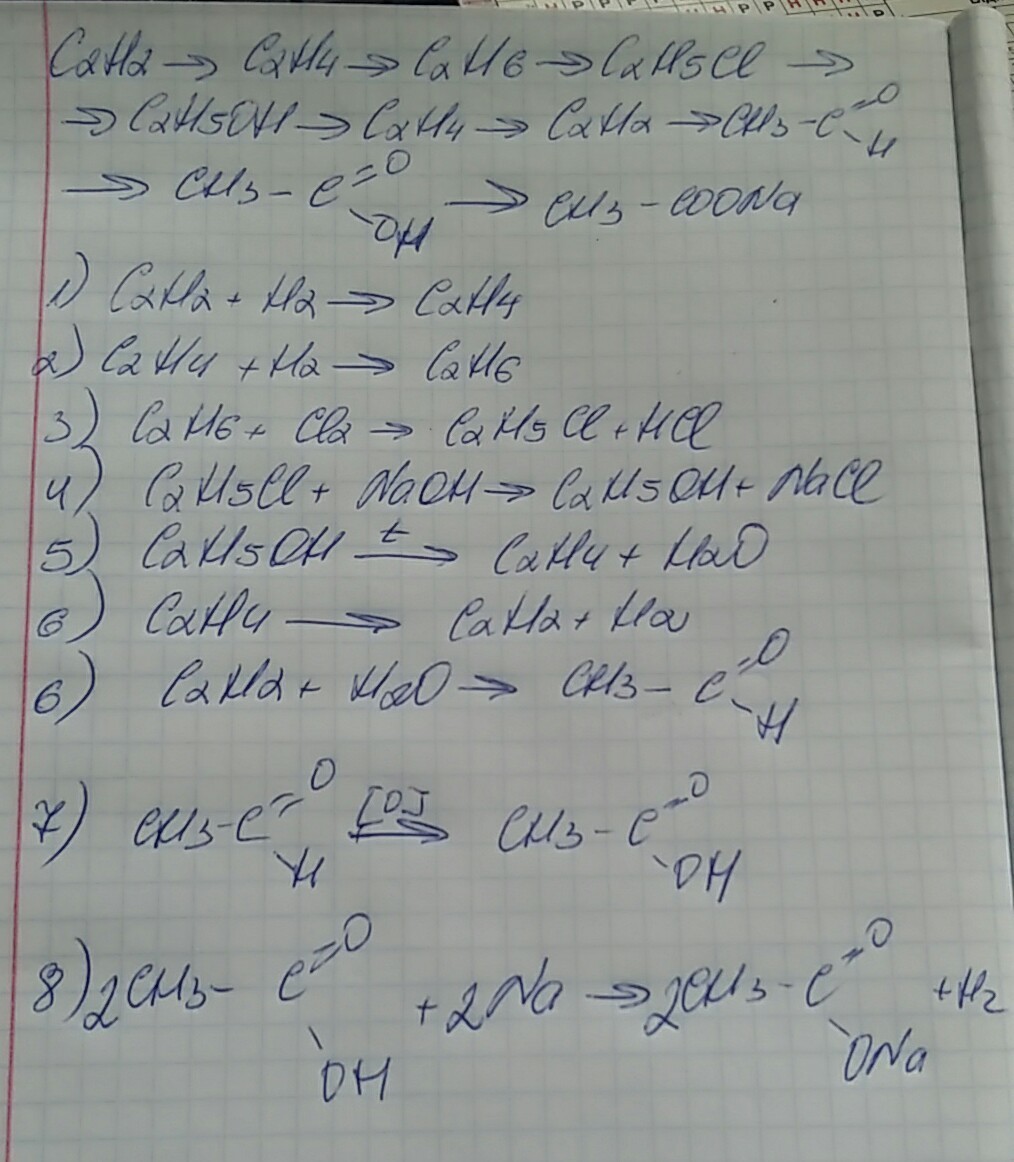 H P P P H H H
H P P H H H H P
C2H2 → C2H4 → C2H6 → C2H5Cl →
→ C2H5OH → C2H4 → C2H2 → CH3-C=O-H
→ CH3-C=O-OH → CH3-COONa
1) C2H2 + H2 → C2H4
2) C2H4 + H2 → C2H6
3) C2H6 + Cl2 → C2H5Cl + HCl
4) C2H5Cl + NaOH → C2H5OH + NaCl
5) C2H5OH t→ C2H4 + H2O
6) C2H4 → C2H2 + H2
6) C2H2 + H2O → CH3-C=O-H
7) CH3-C=O-H [O]→ CH3-C=O-OH
8) 2CH3-C=O-OH + 2Na → 2CH3-C=O-ONa + H2